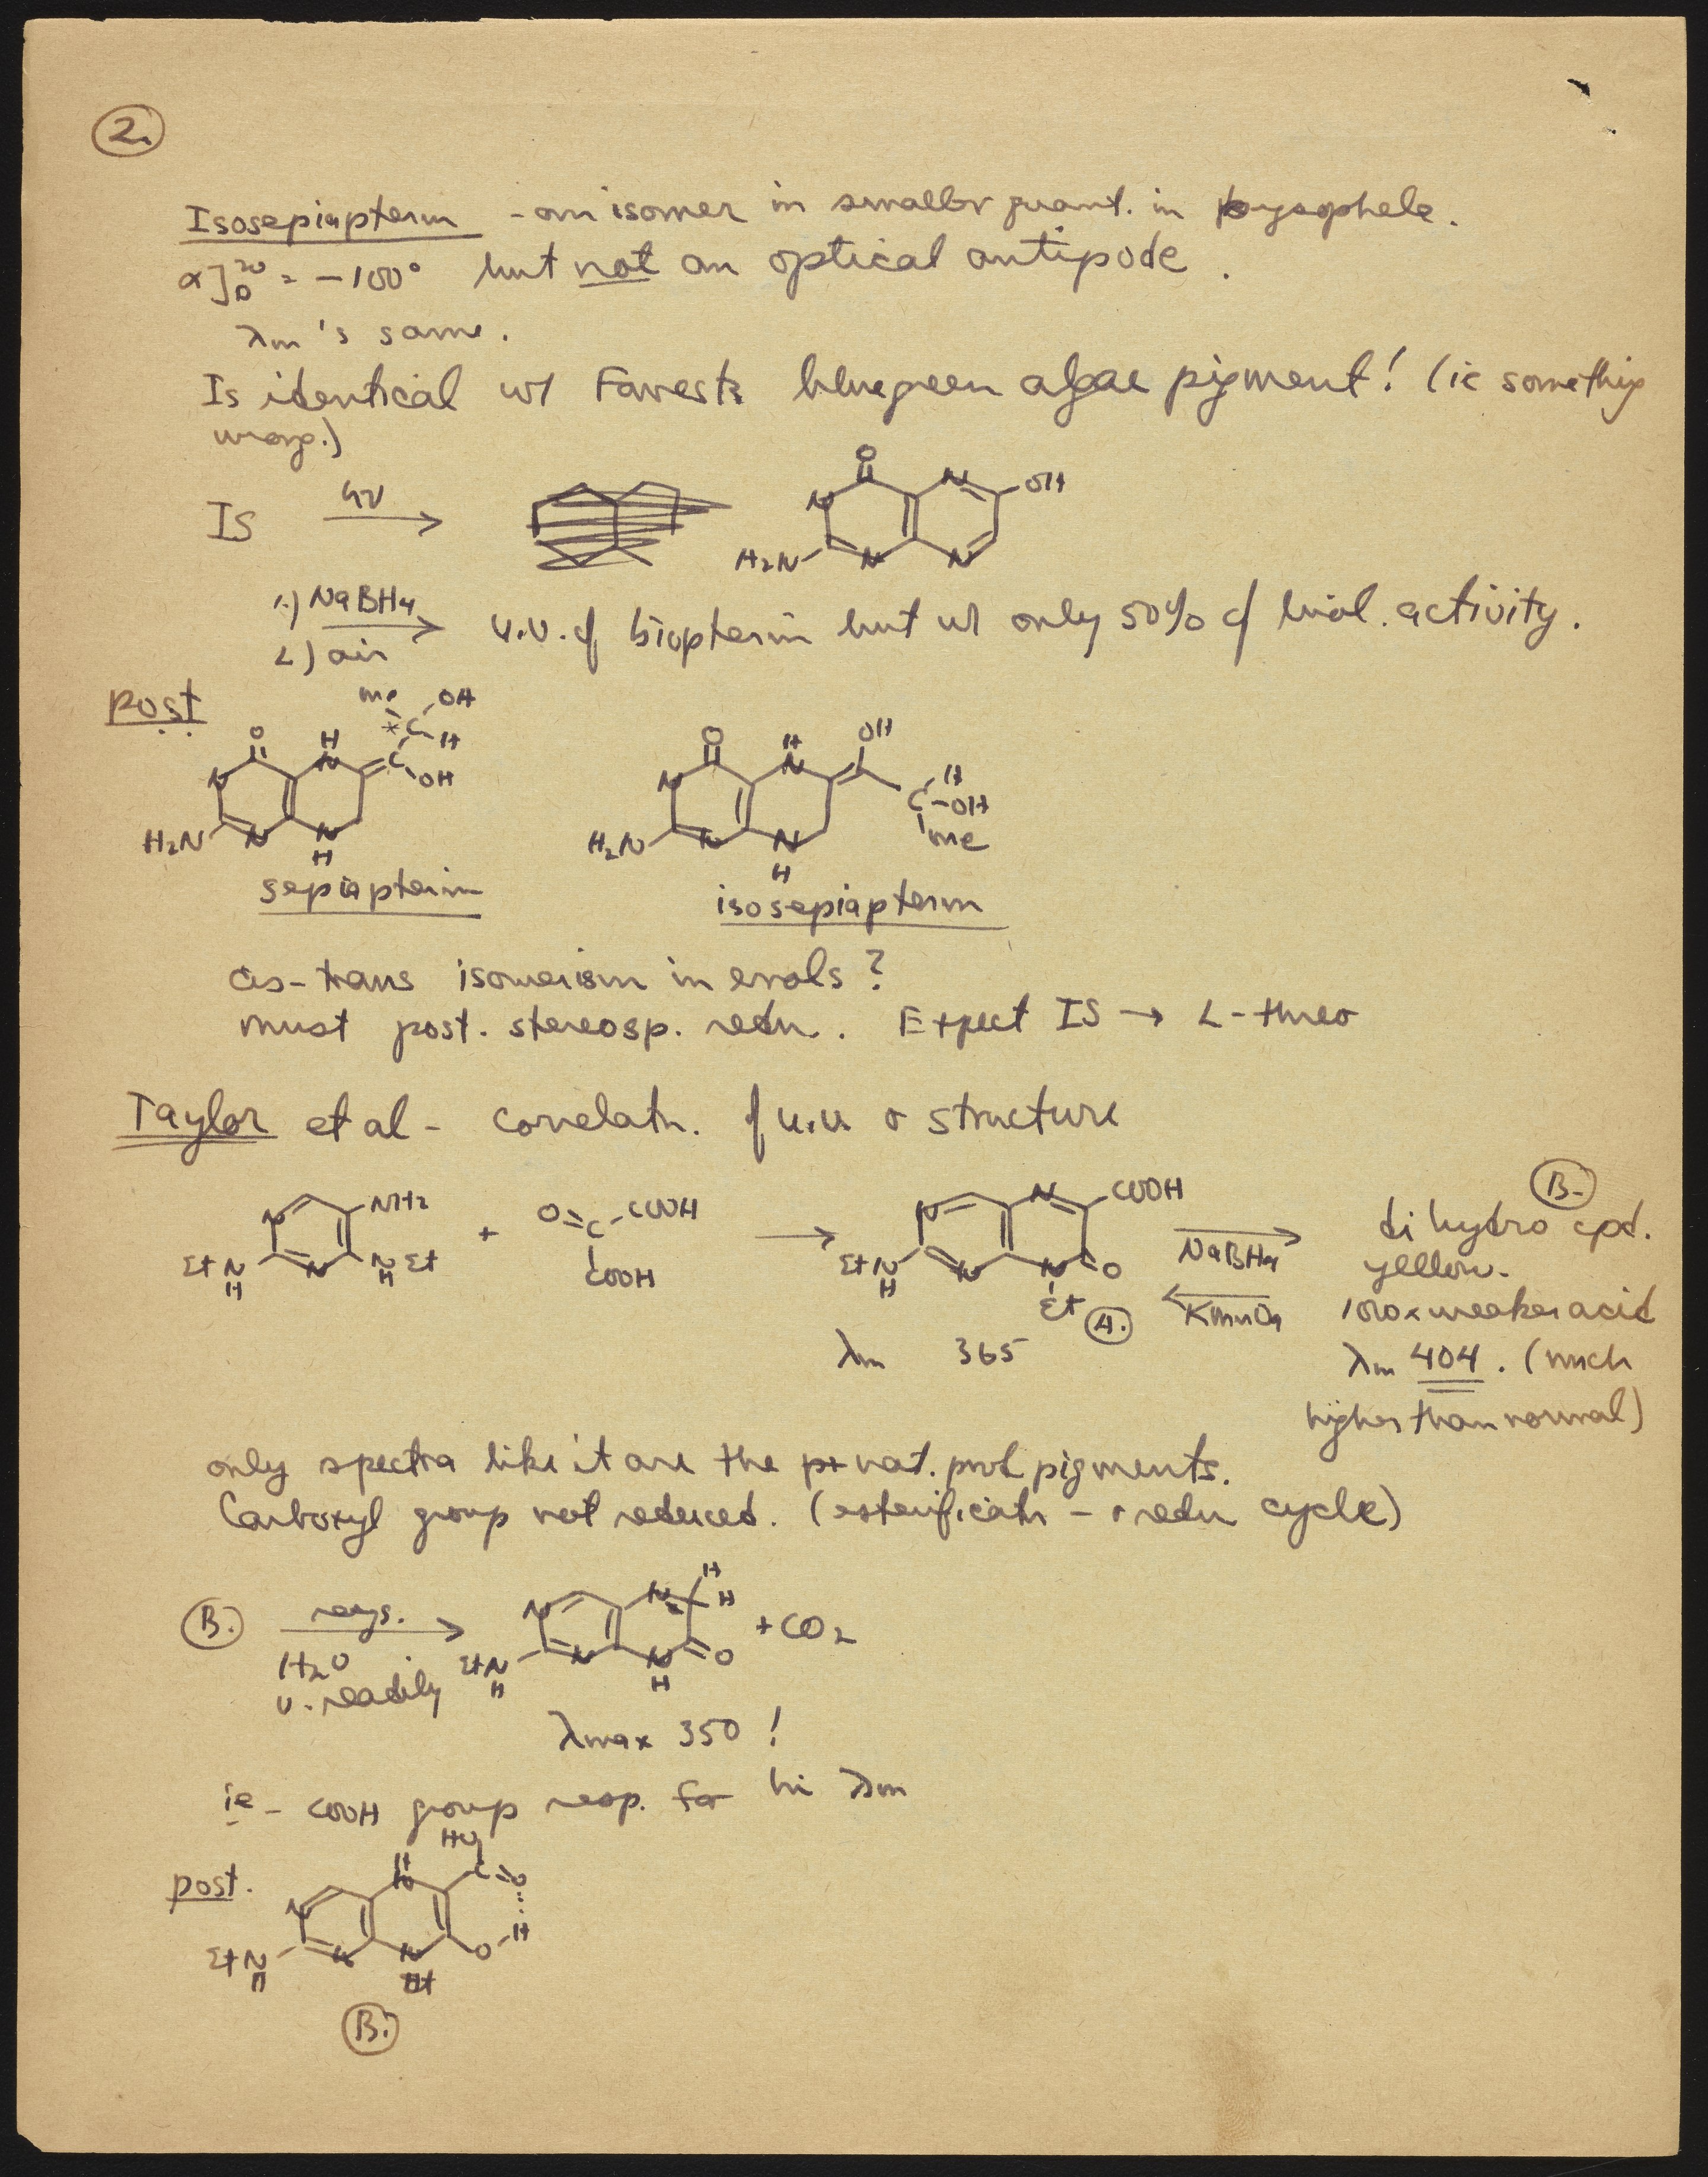 2.
Isosepiapterin - an isomer in smaller quant. in
α]D20 = -100° but not an optical antipode.
λm's same.
Is identical w/ Forrest's bluegreen algae pigment! (ie something
wrong.)
IS hν
O N OH N H2N N N
1.) NaBH4
2.) air
u.v. of biopterin but w/ only 50% of biol. activity.
post
me OH * C H
O H N C OH N H2N N N H
sepiapterin
O H N OH N C H OH me H2N N N H
isosepiapterin
cis-trans isomerism in enols?
must post. stereosp. redn. Expect IS → L-threo
Taylor et al - correlatn. of u.v. & structure
N NH2 EtN H N N H Et + O=C-COOH COOH → N N COOH EtN H N N O Et A.
NaBH4
KMnO4
B.
dihydro cpd.
yellow.
100x weaker acid
λm 404. (much
higher than normal)
λm 365
only spectra like it are the nat. prod pigments.
Carboxyl group not reduced. (esterificatn - & redn cycle)
B. H2O
v. readily
N N H H EtN H N N H O + CO2
λmax 350!
ie - COOH group resp. for hi λm
post.
HO C=O H N N H O EtN H N N Et
B.